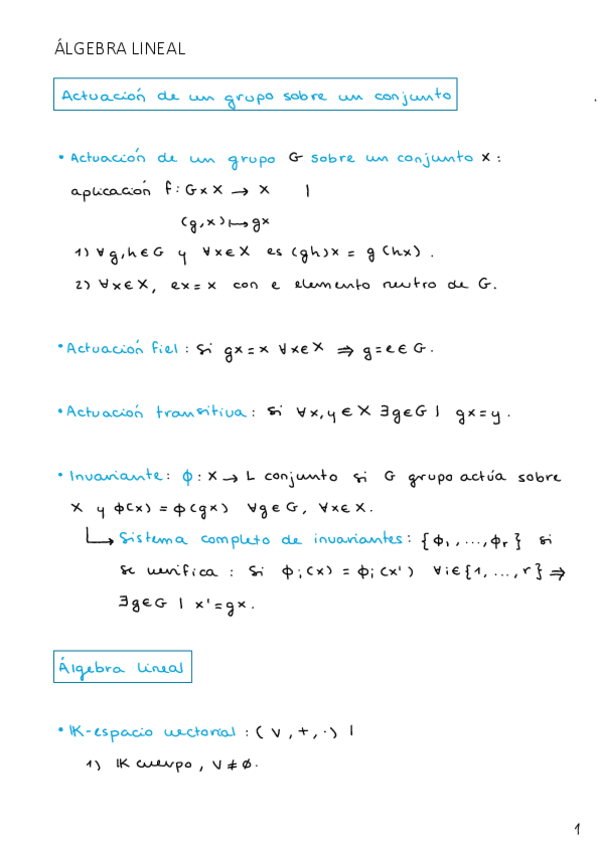 ÁLGEBRA LINEAL
Actuación de un grupo sobre un conjunto
• Actuación de un grupo G sobre un conjunto X:
aplicación f: G×X → X |
(g,x) ↦ gx
1) ∀g,h∈G y ∀x∈X es (gh)x = g(hx).
2) ∀x∈X, ex=x con e elemento neutro de G.
• Actuación fiel: si gx=x ∀x∈X ⇒ g=e∈G.
• Actuación transitiva: si ∀x,y∈X ∃g∈G | gx=y.
• Invariante: ϕ: X → L conjunto si G grupo actúa sobre
X y ϕ(x) = ϕ(gx) ∀g∈G, ∀x∈X.
↳ Sistema completo de invariantes: {ϕ₁,...,ϕᵣ} si
se verifica: si ϕᵢ(x) = ϕᵢ(x') ∀i∈{1,...,r} ⇒
∃g∈G | x'=gx.
Álgebra lineal
• IK-espacio vectorial: (V,+,·) |
1) IK cuerpo, V≠∅.
1